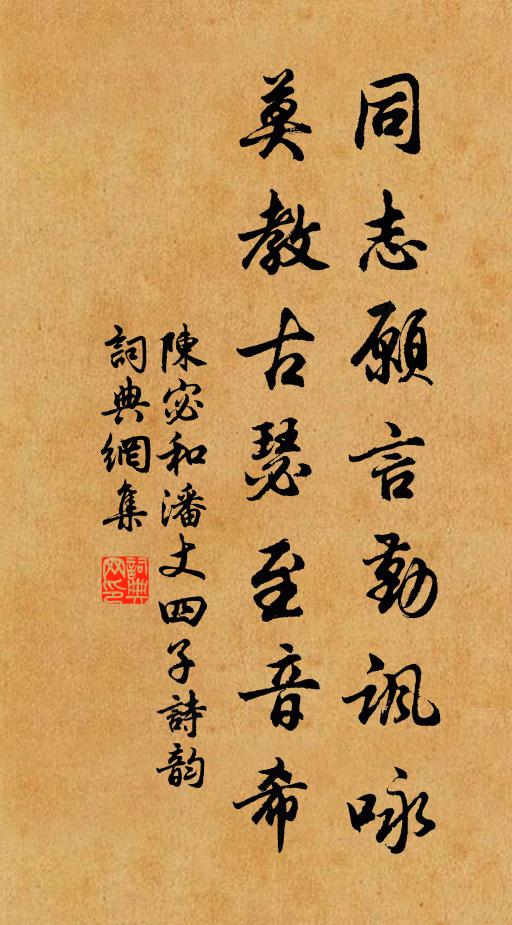 同志願言勤諷咏
莫教古瑟至音希
陳宓和潘丈四子詩韵
詞典網集
詞典网印